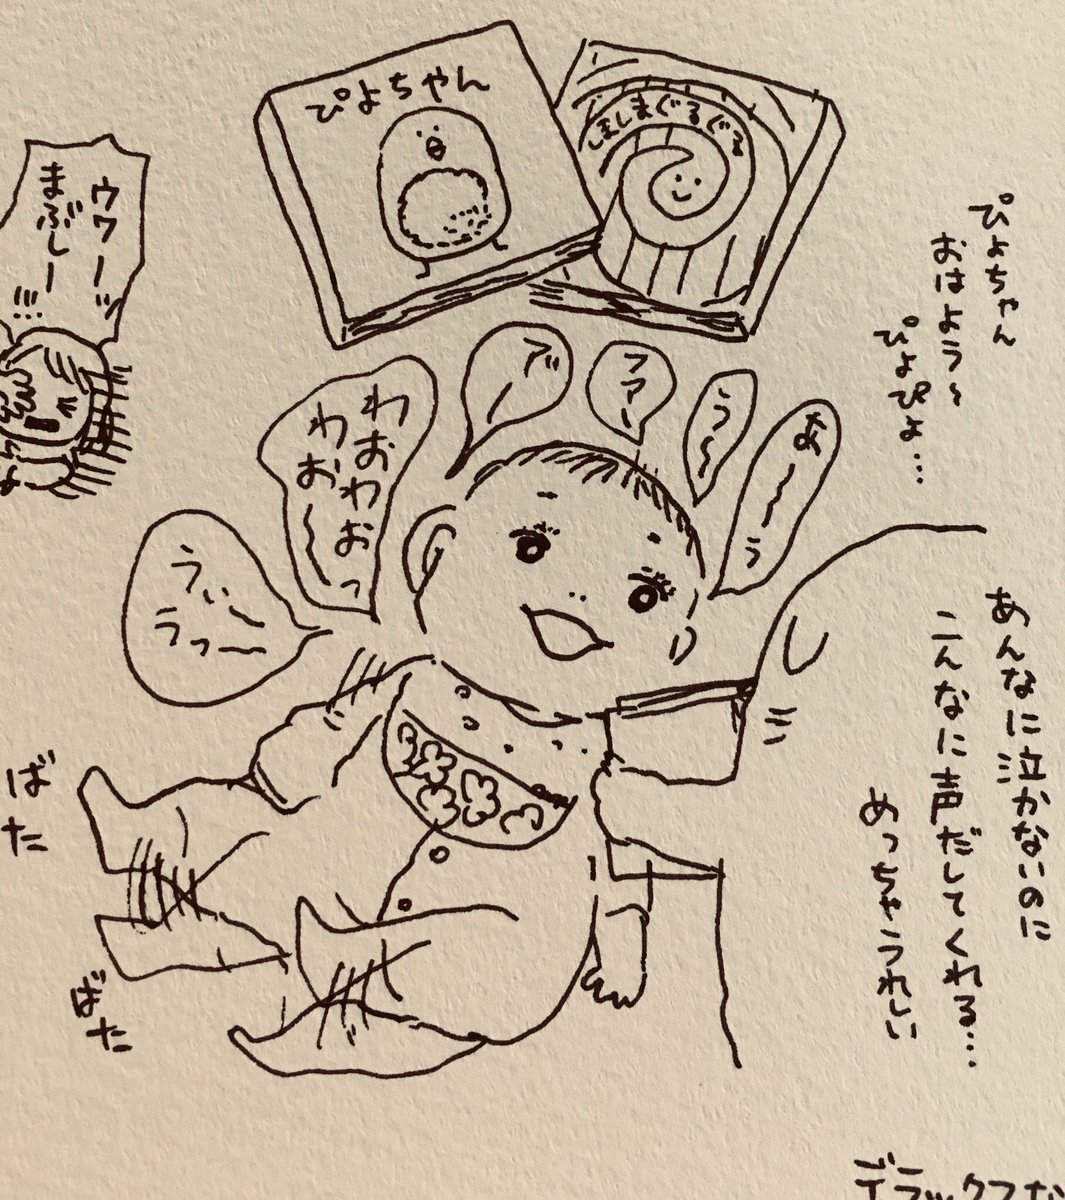 ぴよちゃん
しましまぐるぐる
ぴよちゃん
おはよう〜
ぴよぴよ…
ウワーッ
まぶしー
!!!
あーーう
う〜〜
ファー
ブー
わおわおっ
わお〜〜
うぃー
うっー
あんなに泣かないのに
こんなに声だしてくれる…
めっちゃうれしい
ばた
ばた
デラックスな